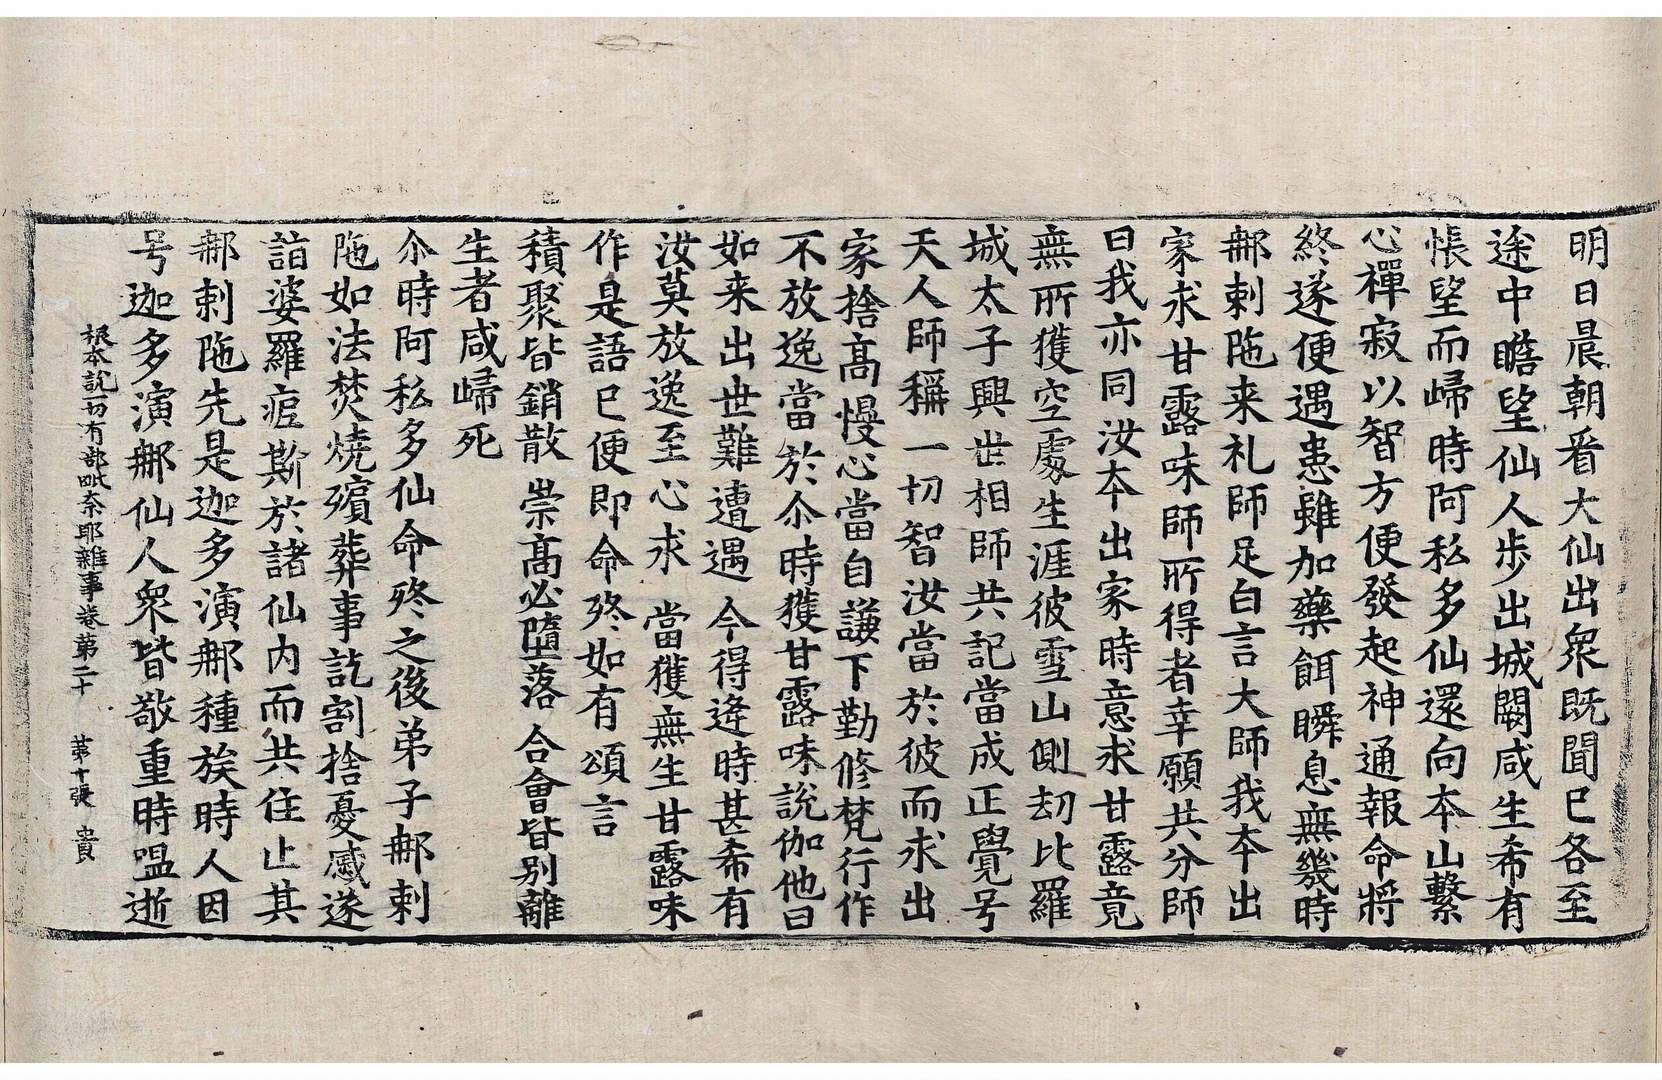 明日晨朝看大仙出衆既聞已各至
途中瞻望仙人步出城闕咸生希有
悵望而歸時阿私多仙還向本山繫
心禪寂以智方便發起神通報命將
終遂便遇患雖加藥餌瞬息無幾時
那剌陁来礼師足白言大師我本出
家求甘露味師所得者幸願共分師
曰我亦同汝本出家時意求甘露竟
無所獲空處生涯彼雪山側劫比羅
城太子興世相師共記當成正覺号
天人師稱一切智汝當於彼而求出
家捨高慢心當自謙下勤修梵行作
不放逸當於尒時獲甘露味說伽他曰
如来出世難遭遇 今得逄時甚希有
汝莫放逸至心求 當獲無生甘露味
作是語已便即命終如有頌言
積聚皆銷散 崇高必墮落 合會皆別離
生者咸歸死
尒時阿私多仙命終之後弟子那剌
陁如法焚燒殯葬事訖割捨憂慼遂
詣婆羅痆斯於諸仙内而共住止其
那剌陁先是迦多演那種族時人因
号迦多演那仙人衆皆敬重時嗢逝
根本說一切有部毗奈耶雜事卷第二十 第十張 貴